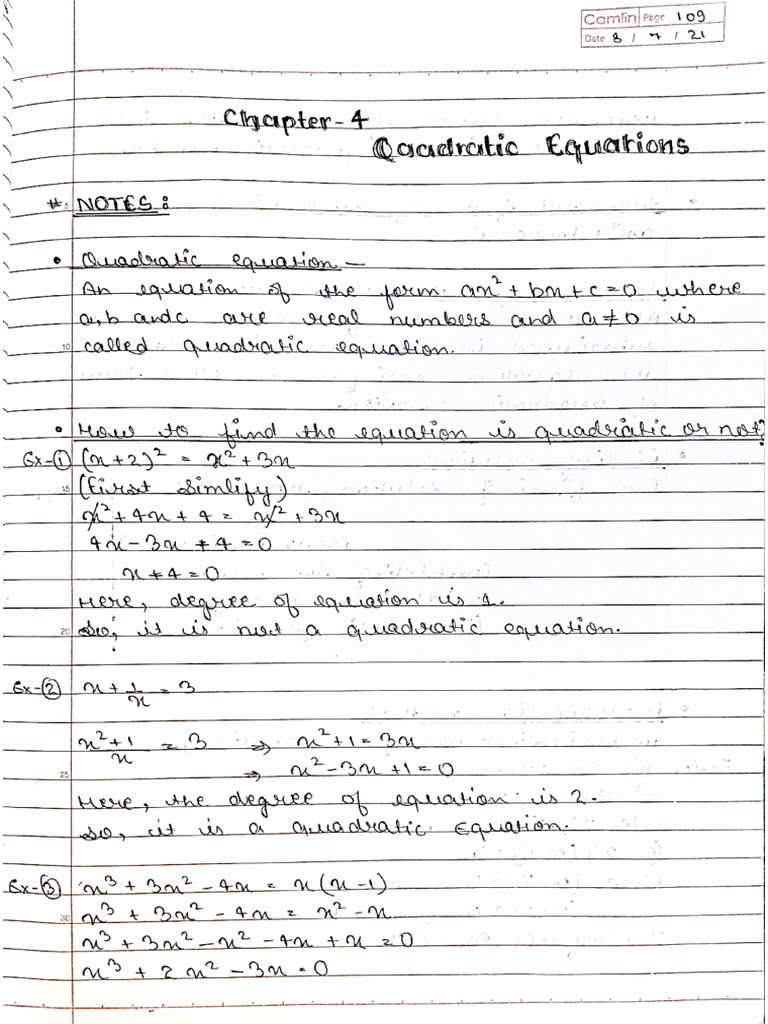 Camlin Page 109
Date 8 / 7 / 21
Chapter-4
Quadratic Equations
#. NOTES:
• Quadratic equation –
An equation of the form ax² + bx + c = 0 where
a, b and c are real numbers and a ≠ 0 is
10 called quadratic equation.
• How to find the equation is quadratic or not?
Ex-① (x+2)² = x² + 3x
15 (First Simlify)
x² + 4x + 4 = x² + 3x
4x - 3x + 4 = 0
x + 4 = 0
Here, degree of equation is 1.
20 So, it is not a quadratic equation.
Ex-② x + 1/x = 3
(x²+1)/x = 3 ⇒ x² + 1 = 3x
25 ⇒ x² - 3x + 1 = 0
Here, the degree of equation is 2.
So, it is a quadratic Equation.
Ex-③ x³ + 3x² - 4x = x(x-1)
30 x³ + 3x² - 4x = x² - x
x³ + 3x² - x² - 4x + x = 0
x³ + 2x² - 3x = 0